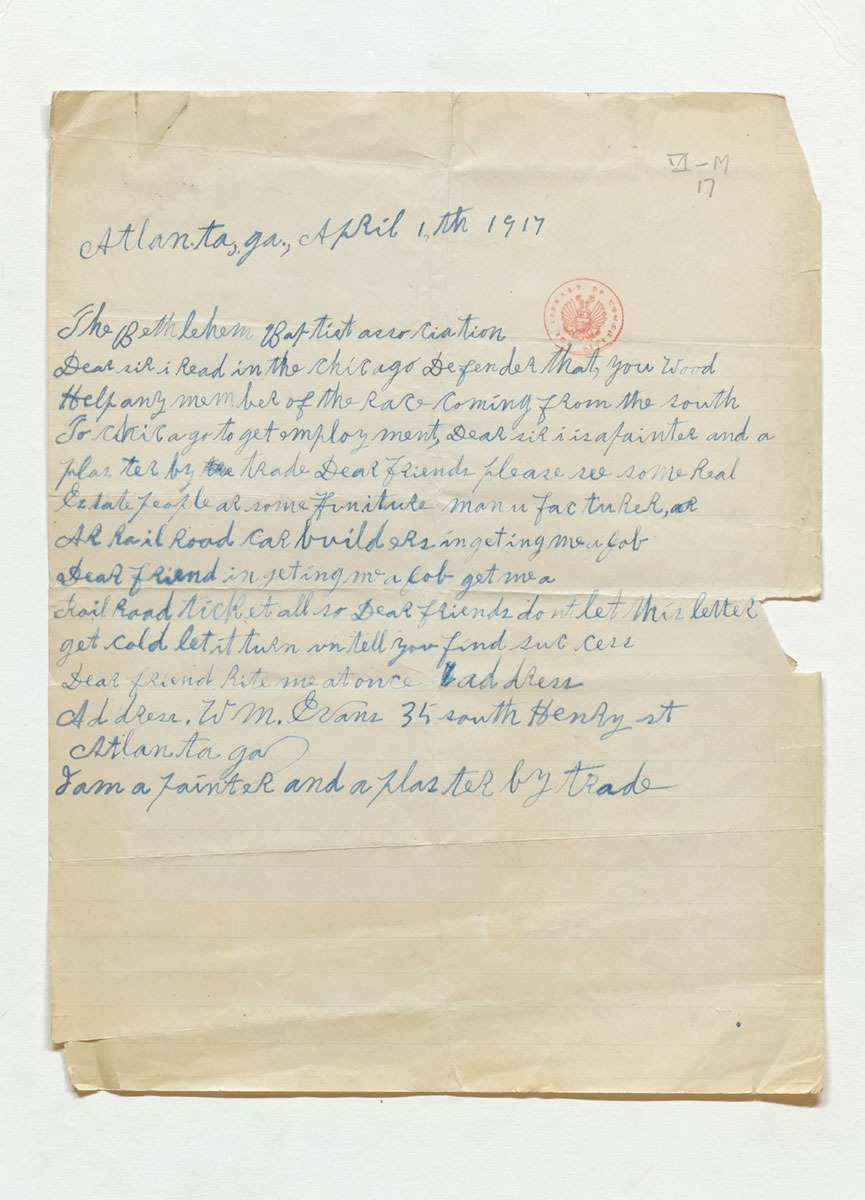 VI-M
17
Atlanta, ga., April 1,th 1917
The Bethlehem Baptist association
Dear sir i Read in the chicago Defender that, you wood
Help any member of the Race coming from the south
To chicago to get employment, Dear sir i is a painter and a
plaster by the trade Dear friends please see some Real
Estate people ar some funiture manufacturer, ar
AR Rail Road car builders in geting me a Job
Dear friend in geting me a Job get me a
Rail Road ticket all so Dear friends dont let this letter
get cold let it turn un tell you find success
Dear friend Rite me at once address
Address. WM. Evans 35 south Henry st
Atlanta ga
I am a painter and a plaster by trade